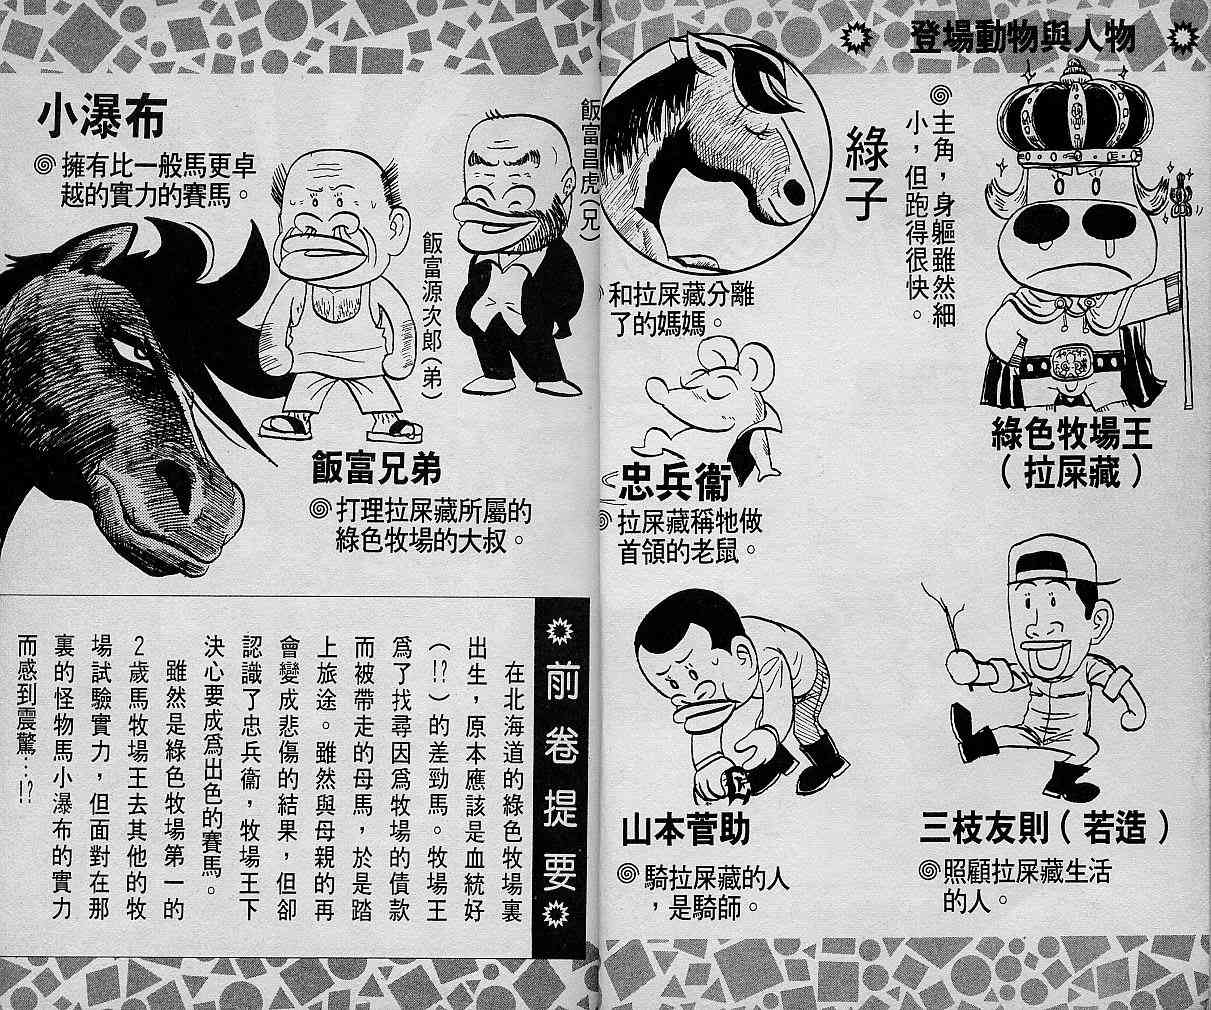 登場動物與人物
綠色牧場王
（拉屎藏）
主角，身軀雖然細
小，但跑得很快。
綠子
和拉屎藏分離
了的媽媽。
忠兵衞
拉屎藏稱牠做
首領的老鼠。
三枝友則（若造）
照顧拉屎藏生活
的人。
山本菅助
騎拉屎藏的人
，是騎師。
飯富昌虎（兄）
飯富源次郎（弟）
飯富兄弟
打理拉屎藏所屬的
綠色牧場的大叔。
小瀑布
擁有比一般馬更卓
越的實力的賽馬。
前卷提要
在北海道的綠色牧場裏
出生，原本應該是血統好
（!?）的差勁馬。牧場王
爲了找尋因爲牧場的債款
而被帶走的母馬，於是踏
上旅途。雖然與母親的再
會變成悲傷的結果，但卻
認識了忠兵衞，牧場王下
決心要成爲出色的賽馬。
雖然是綠色牧場第一的
2歲馬牧場王去其他的牧
場試驗實力，但面對在那
裏的怪物馬小瀑布的實力
而感到震驚…!?